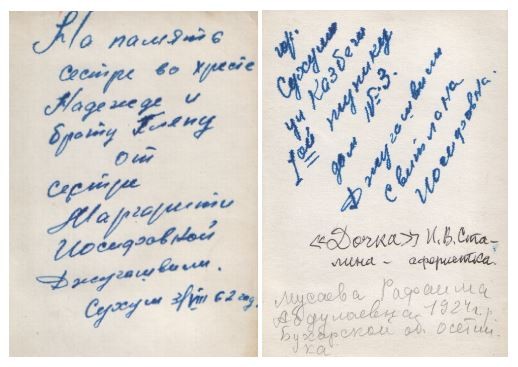 На память
сестре во христе
Надежде и
брату Гляпу
от
сестре
Маргарити
Иосифовной
Джугашвили.
Сухум 31/VIII 62 год.
гор.
Сухуми
ул Казбеги
1ой тупику
дом №3.
Джугашвили
Светлана
Иосифовна.
«Дочка» И.В.Ста-
лина - аферистка.
Мусаева Рафаима
Абдулаевна 1924 г.
Бухарской об. осетин-
ка